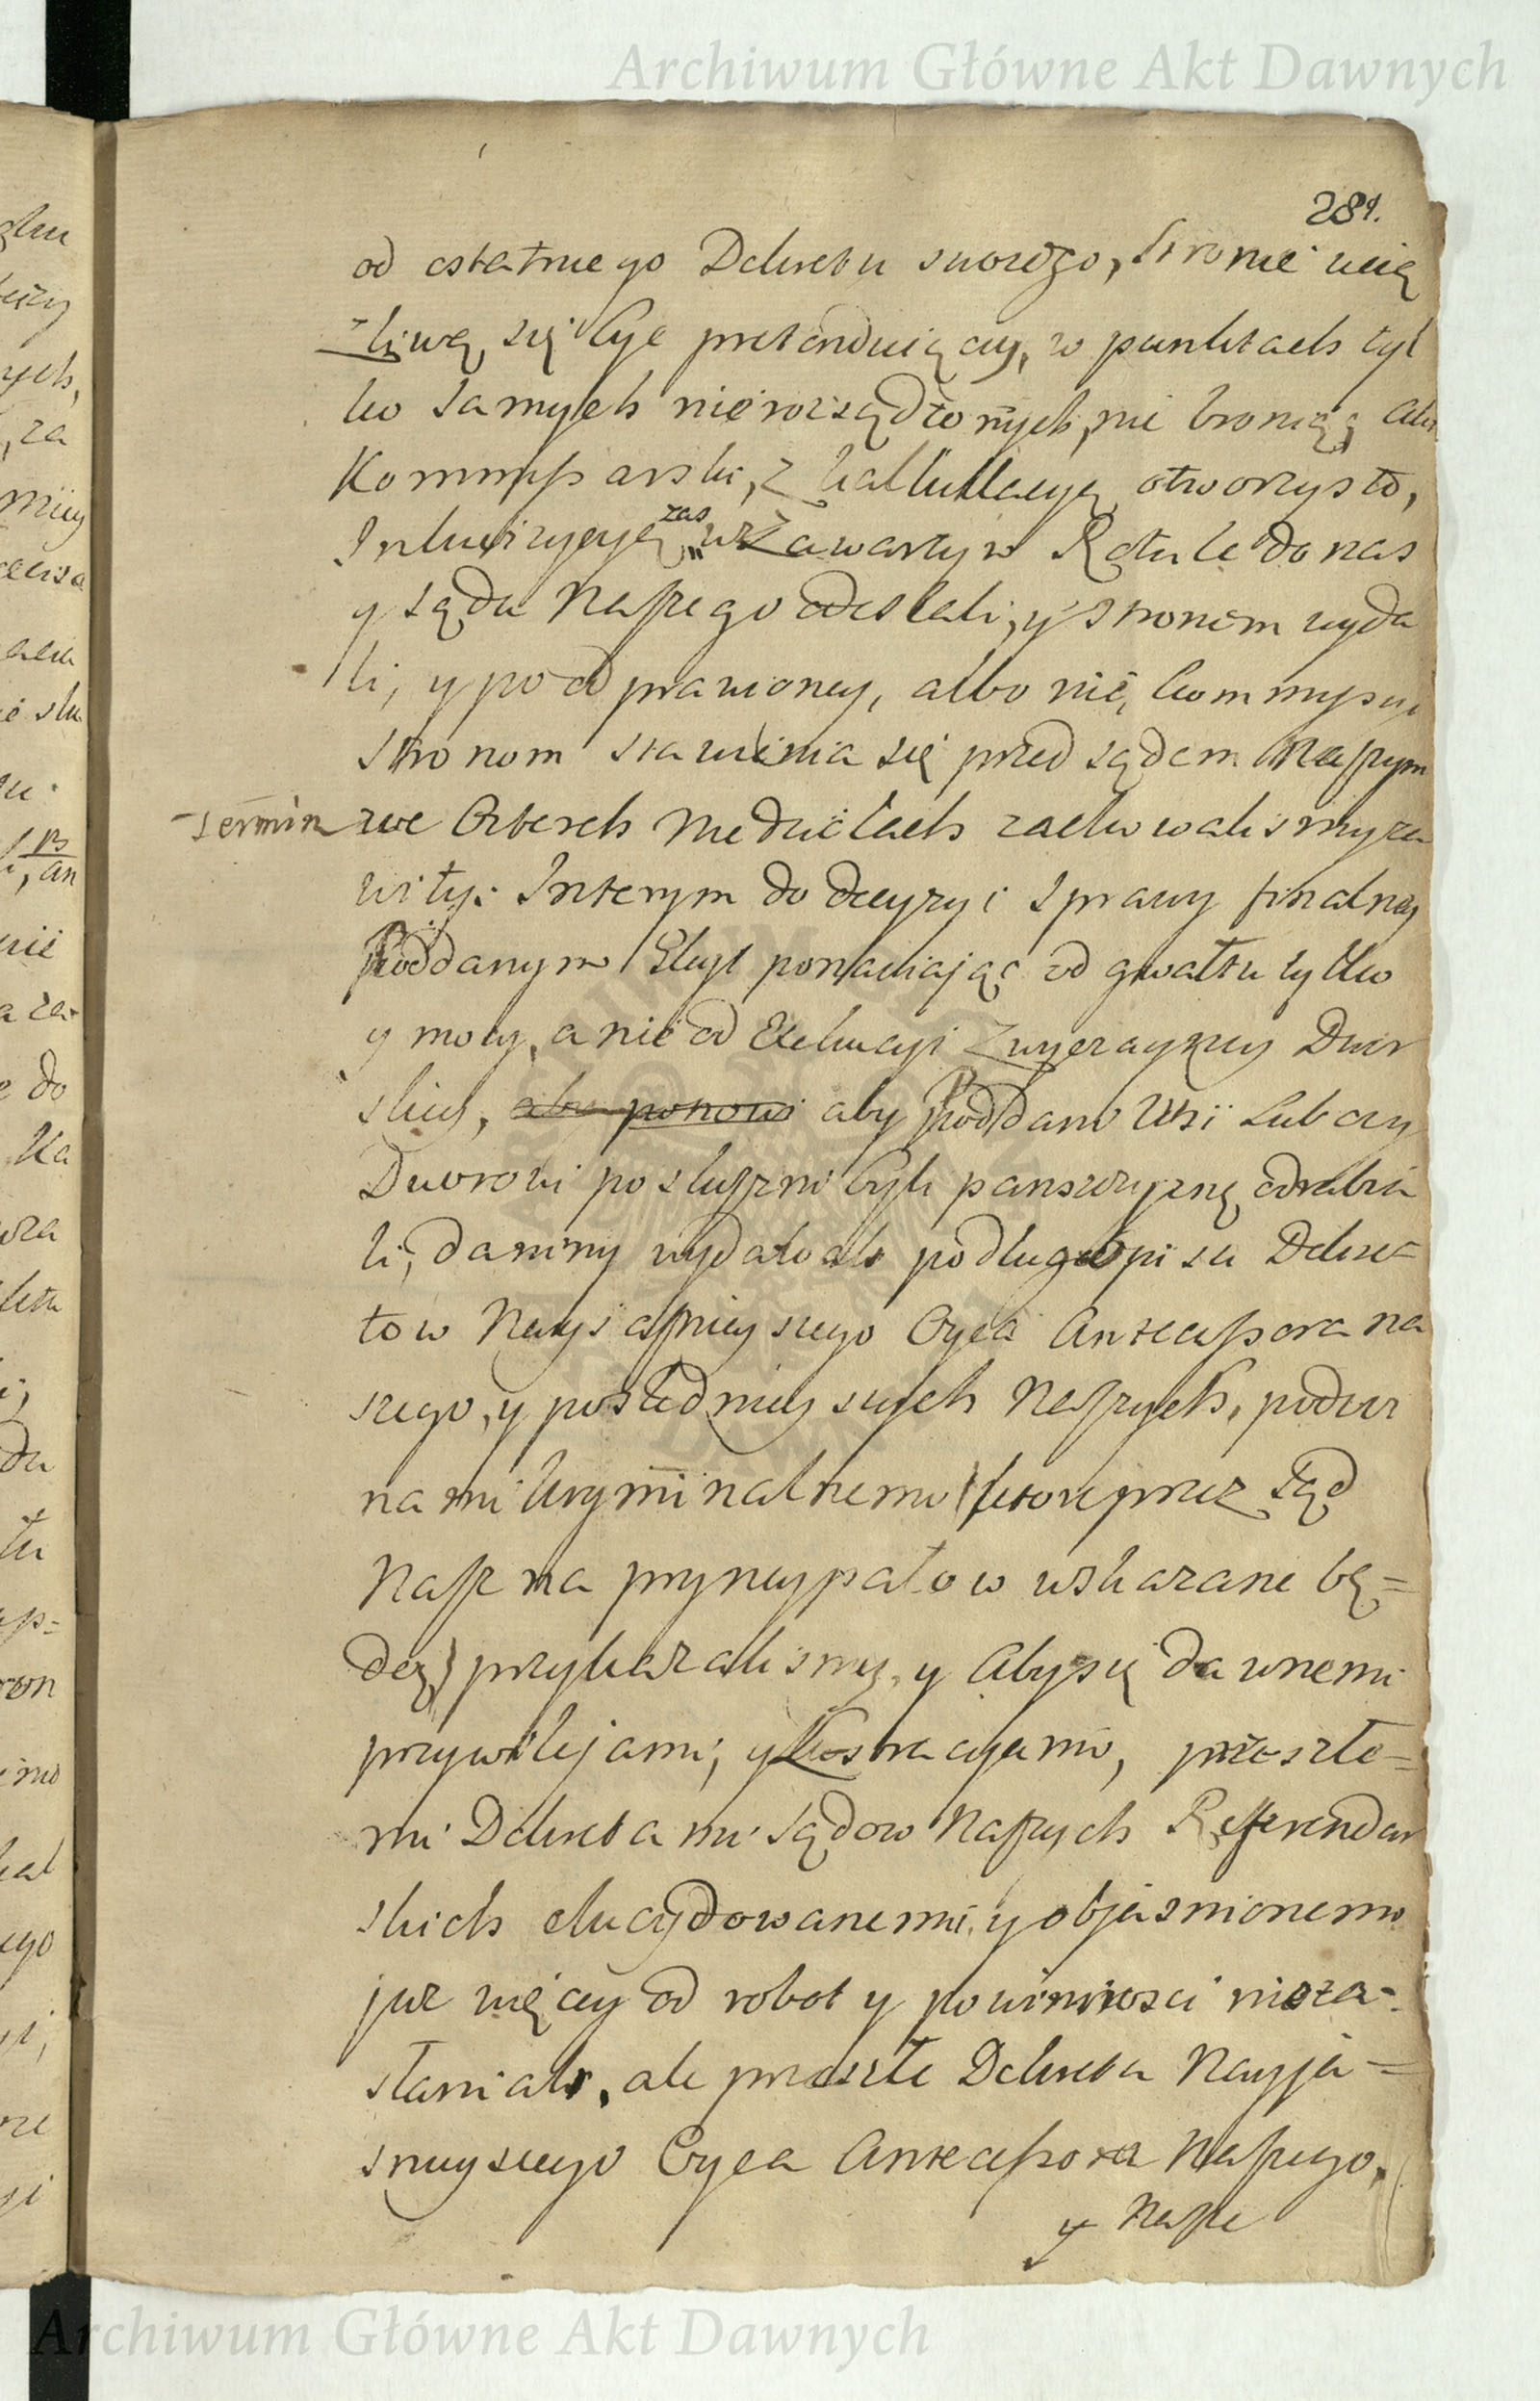 Archiwum Główne Akt Dawnych
281.
od ostatniego Dekretu swoiego, stronie ucią
żliwą się byc pretenduiący, w punktach tyl
ko samych nierozsądzonych, nie bronią, Akt
Kommyssarski, z kalkulacyą otworzysto,
Inkwizycyą zas w zawarty w Rotule do nas
y sądu Naszego odesłali, y stronom wyda
li, y po odprawioney, albo nie, kommyssyi
stronom stawienia się przed sądem Naszym
Termin we Czterech Niedzielach zachowalismy za
wity: Interym do decyzyi sprawy finalney
Poddanym Gleyt ponawiając od gwałtu tylko
y mocy, a nie od Exekucyi zwyczayney Dwor
skiey, aby ponowi aby Poddani Wsi Lubczy
Dworowi posłuszni byli panszczyznę odrabia
li, daniny wydawali podług opisu Dekre=
tow Nayiasnieyszego Oyca Antecessora na
szego, y poslednieyszych Naszych, pod wi
nami kryminalnemi (ktore przez sąd
Nasz na pryncypałow wskazane bę=
dą) przykazalismy, y aby się dawnemi
przywilejami, y Lustracyami, przeszłe=
mi Dekretami sądow Naszych Refferendar
skich elucydowanemi, y objasnionemi
juz więcey od robot y powinnosci nieza=
słaniali, ale przeszłe Dekreta Nayja=
snieyszego Oyca Antecessora Naszego,
y Nasze
Archiwum Główne Akt Dawnych